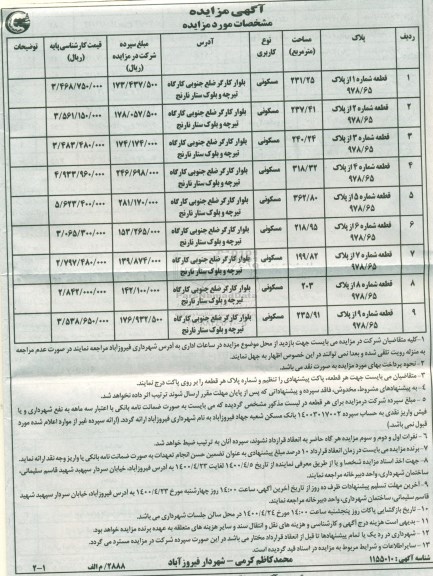 آگهی مزایده
مشخصات مورد مزایده
ردیف پلاک مساحت (مترمربع) نوع کاربری آدرس مبلغ سپرده شرکت در مزایده (ریال) قیمت کارشناسی پایه (ریال) توضیحات
۱ قطعه شماره ۱ از پلاک ۹۷۸/۶۵ ۲۳۱/۲۵ مسکونی بلوار کارگر ضلع جنوبی کارگاه تیرچه و بلوک ستار نارنج ۱۷۳/۴۳۷/۵۰۰ ۳/۴۶۸/۷۵۰/۰۰۰
۲ قطعه شماره ۲ از پلاک ۹۷۸/۶۵ ۲۳۷/۴۱ مسکونی بلوار کارگر ضلع جنوبی کارگاه تیرچه و بلوک ستار نارنج ۱۷۸/۰۵۷/۵۰۰ ۳/۵۶۱/۱۵۰/۰۰۰
۳ قطعه شماره ۳ از پلاک ۹۷۸/۶۵ ۲۴۰/۲۴ مسکونی بلوار کارگر ضلع جنوبی کارگاه تیرچه و بلوک ستار نارنج ۱۷۴/۱۷۴/۰۰۰ ۳/۴۸۳/۴۸۰/۰۰۰
۴ قطعه شماره ۴ از پلاک ۹۷۸/۶۵ ۳۱۸/۳۲ مسکونی بلوار کارگر ضلع جنوبی کارگاه تیرچه و بلوک ستار نارنج ۲۴۶/۶۹۸/۰۰۰ ۴/۹۳۳/۹۶۰/۰۰۰
۵ قطعه شماره ۵ از پلاک ۹۷۸/۶۵ ۳۶۲/۸۰ مسکونی بلوار کارگر ضلع جنوبی کارگاه تیرچه و بلوک ستار نارنج ۲۸۱/۱۷۰/۰۰۰ ۵/۶۲۳/۴۰۰/۰۰۰
۶ قطعه شماره ۶ از پلاک ۹۷۸/۶۵ ۲۱۸/۹۵ مسکونی بلوار کارگر ضلع جنوبی کارگاه تیرچه و بلوک ستار نارنج ۱۵۳/۲۶۵/۰۰۰ ۳/۰۶۵/۳۰۰/۰۰۰
۷ قطعه شماره ۷ از پلاک ۹۷۸/۶۵ ۱۹۹/۸۲ مسکونی بلوار کارگر ضلع جنوبی کارگاه تیرچه و بلوک ستار نارنج ۱۳۹/۸۷۴/۰۰۰ ۲/۷۹۷/۴۸۰/۰۰۰
۸ قطعه شماره ۸ از پلاک ۹۷۸/۶۵ ۲۰۳ مسکونی بلوار کارگر ضلع جنوبی کارگاه تیرچه و بلوک ستار نارنج ۱۴۲/۱۰۰/۰۰۰ ۲/۸۴۲/۰۰۰/۰۰۰
۹ قطعه شماره ۹ از پلاک ۹۷۸/۶۵ ۲۳۵/۹۱ مسکونی بلوار کارگر ضلع جنوبی کارگاه تیرچه و بلوک ستار نارنج ۱۷۶/۹۳۲/۵۰۰ ۳/۵۳۸/۶۵۰/۰۰۰
۱- کلیه متقاضیان شرکت در مزایده می بایست جهت بازدید از محل موضوع مزایده در ساعات اداری به آدرس شهرداری فیروزآباد مراجعه نمایند در صورت عدم مراجعه
به منزله رویت تلقی شده و بعدا نمی توانند در این خصوص اظهار به جهل نمایند.
۲- نحوه پرداخت بهای مورد مزایده به صورت نقد می باشد.
۳- متقاضیان می بایست جهت هر قطعه، پاکت پیشنهادی را تنظیم و شماره پلاک هر قطعه را بر روی پاکت درج نمایند.
۴- به پیشنهادهای مشروط، مخدوش، فاقد سپرده و پیشنهاداتی که پس از پایان مهلت مقرر ارسال شوند ترتیب اثر داده نخواهد شد.
۵- مبلغ سپرده شرکت در مزایده برای هر قطعه در لیست مذکور مشخص گردیده که می بایست به صورت ضمانت نامه بانکی با اعتبار سه ماهه به نفع شهرداری و یا
فیش واریز نقدی به حساب سپرده ۱۴۰۰۳۰۱۷۰۰۲ بانک مسکن شعبه جهاد فیروزآباد به نام شهرداری فیروزآباد ارائه گردد. (ارائه سپرده غیر از موارد اعلام شده مورد
قبول نمی باشد.)
۶- نفرات اول و دوم و سوم مزایده هر گاه حاضر به انعقاد قرارداد نشوند، سپرده آنان به ترتیب ضبط خواهد شد.
۷- برنده مزایده می بایست در زمان انعقاد قرارداد ۱۰ درصد مبلغ پیشنهادی به عنوان تضمین حسن انجام تعهدات به صورت ضمانت نامه بانکی یا واریز وجه نقد ارائه نماید.
۸- جهت اخذ اسناد مزایده شخصا و یا از طریق معرفی نماینده از تاریخ ۱۴۰۰/۴/۵ لغایت ۱۴۰۰/۴/۲۳ به آدرس فیروزآباد، خیابان سردار سپهبد شهید قاسم سلیمانی،
ساختمان شهرداری، واحد دبیرخانه مراجعه نمایند.
۹- آخرین مهلت تسلیم پیشنهادات ظرف ده روز از تاریخ آخرین آگهی، ساعت ۱۴:۰۰ روز چهارشنبه مورخ ۱۴۰۰/۴/۲۳ به آدرس فیروزآباد، خیابان سردار سپهبد شهید
قاسم سلیمانی، ساختمان شهرداری، واحد دبیرخانه مراجعه نمایند.
۱۰- تاریخ بازگشایی پاکات روز پنجشنبه ساعت ۱۴:۰۰ مورخ ۱۴۰۰/۴/۲۴ در محل سالن جلسات شهرداری می باشد.
۱۱- بدیهی است هزینه درج آگهی و کارشناسی و هزینه های نقل و انتقال سند و سایر هزینه های متعلقه به عهده برنده مزایده خواهد بود.
۱۲- شهرداری در رد یک یا تمام پیشنهادها تا قبل از انعقاد قرارداد مختار می باشد در این صورت سپرده شرکت در مزایده مسترد می گردد.
۱۳- سایر اطلاعات و شرایط مربوط به مزایده در اسناد قید گردیده است.
شناسه آگهی: ۱۱۵۵۰۱۰ محمدکاظم کرمی - شهردار فیروزآباد ۲۸۸۸/م الف ۲-۱